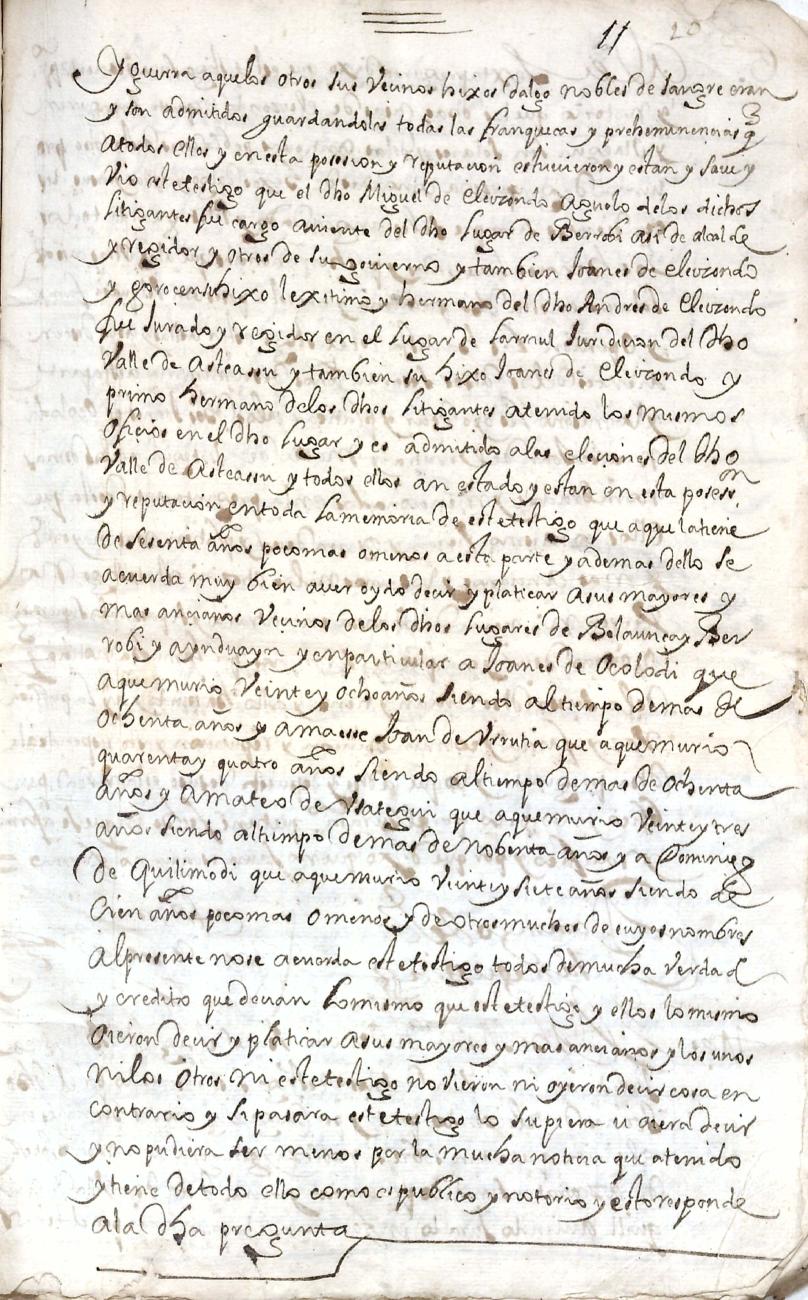 11 20
Y guerra aquelos otros sus Vecinos hixos dalgo nobles de sangre eran
y son admitidos guardandoles todas las franquecas y prehemminencias q
atodos ellos y en esta posesion y reputacion estuvieron y estan y save y
vio este testigo que el dho Miguel de Eleizondo Aguelo delos dichos
Litigantes fue cargo aviente del dho Lugar de Berrobi asi de alcalde
y regidor y otros de su govierno y tambien Joanes de Eleizondo
y gorocen su hixo lexitimo y hermano del dho Andres de Eleizondo
fue Jurado y regidor en el Lugar de Larraul Juridicion del dho
Valle de Asteassu y tambien su hixo Joanes de Eleizondo y
primo hermano delos dhos Litigantes atenido los mismos
oficios en el dho Lugar y es admitido alas eleciones del dho
Valle de Asteassu y todos ellos an estado y estan en esta posesson
y reputacion entoda Lamemoria de este testigo que aque latiene
de sesenta años pocomas omenos aesta parte y ademas dello se
acuerda muy bien aver oydo decir y platicar asus mayores y
mas ancianos Vecinos delos dhos Lugares de Belaunca y Ber
robi y aynduayn y enparticular a Joanes de Ocolodi que
aquemurio Veinte y ochoaños siendo altiempo demas de
ochenta años y amaese Joan de Vrrutia que aquemurio
quarentay quatro años siendo altiempo demas de ochenta
años y Amateo de Vsategui que aquemurio Veinteytres
años siendo altiempo demas de nobenta años y a Domingo
de Quilimodi que aquemurio Veinteysiete años siendo de
Cien años pocomas omenos y de otros muchos de cuyos nombres
Alpresente nose acuerda este testigo todos demucha verdad
y credito que decian lomismo que este testigo y ellos lo mismo
oieron decir y platicar asus mayores y mas ancianos y los unos
nilos otros ni este testigo no vieron ni oyeron decir cosa en
contrario y si pasara este testigo lo supiera u oiera decir
y nopudiera ser menos por la mucha noticia que atenido
y tiene detodo ello como es publico y notorio y esto responde
ala dha pregunta